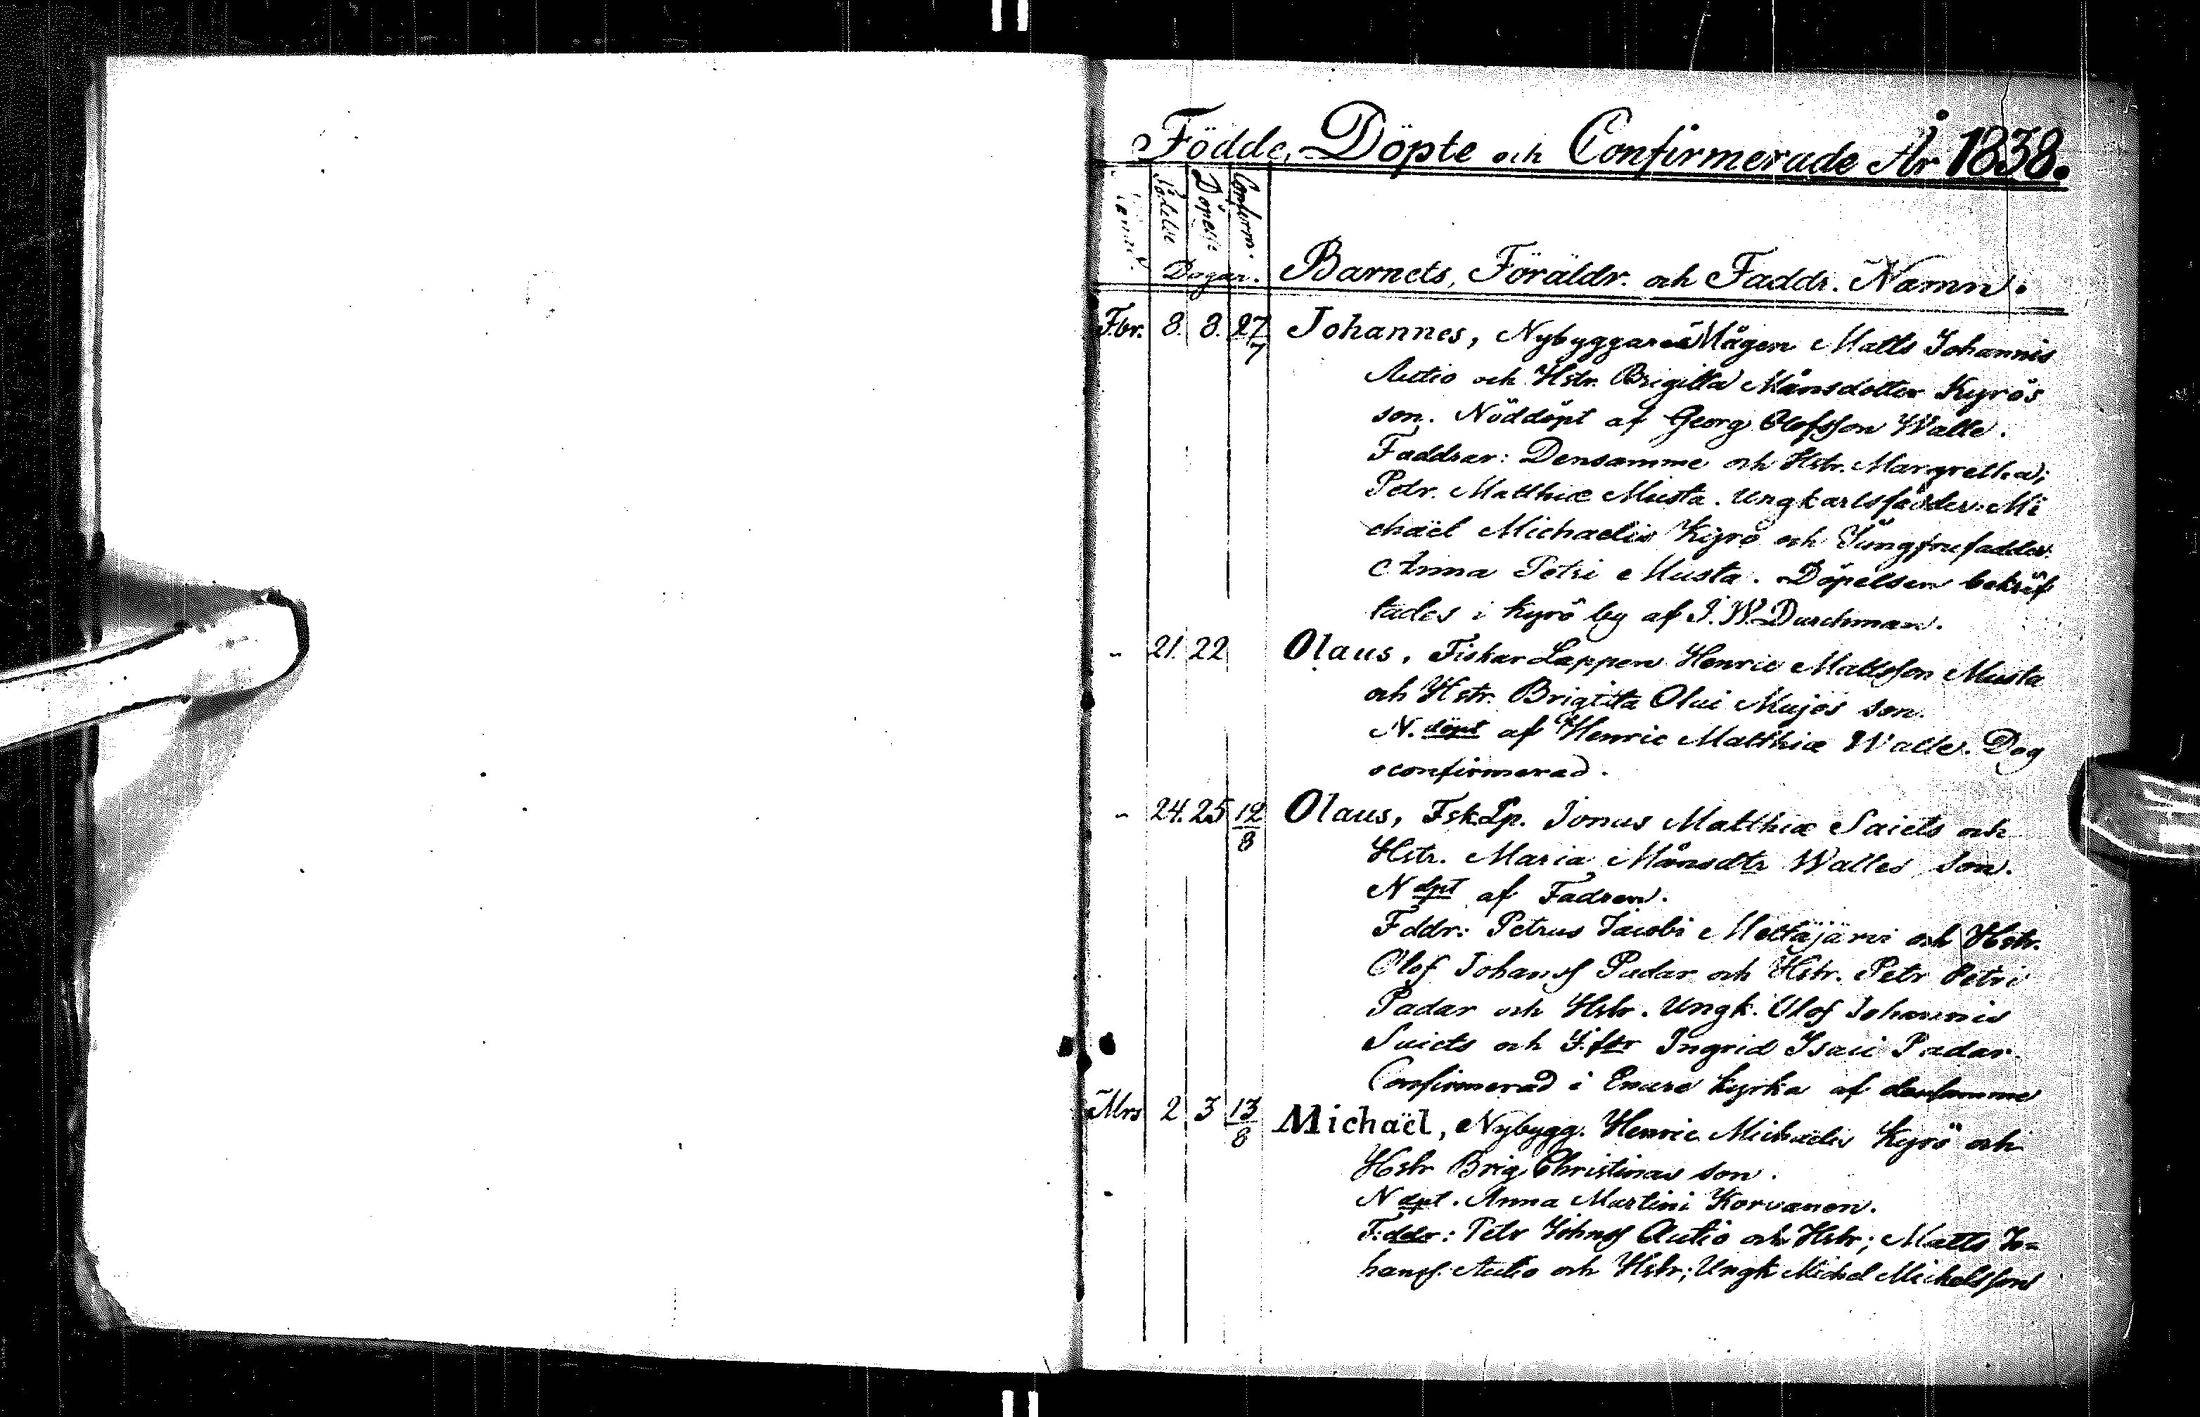 Födde, Döpte och Confirmerade År 1838.
Födelse Döpelse Confirm.
Dagar. Barnets, Föräldr. och Faddr. Namn.
Fbr. 8. 8. 27/7 Johannes, Nybyggare Mågen Matts Johannis
Autio och Hstr. Brigitta Månsdotter Kyrös
son. Nöddöpt af Georg Olofsson Walle.
Faddrar: Densamme och Hstr. Margretha;
Petr. Matthiæ Musta. Ungkarlsfadder: Mi
chaël Michaelis Kyrö och Jungfrufadder
Anna Petri Musta. Döpelsen bekräf
tades i Kyrö by af J. W. Durchman.
" 21. 22 Olaus, Fiskar Lappen Henric Mattsson Musta
och Hstr. Brigitta Olai Mujos son.
N. döpt af Henric Matthiæ Walle. Dog
oconfirmerad.
" 24. 25 12/8 Olaus, Fsk.Lp. Jonas Matthiæ Saiets och
Hstr. Maria Månsdtr Walles son.
N dpt af Fadren.
Fddr: Petrus Jacobi Mottäjärvi och Hstr.
Olof Johanss Padar och Hstr. Petr Petri
Padar och Hstr. Ungk. Olof Johannis
Saiets och J.ftr Ingrid Isaci Padar.
Confirmerad i Enare kyrka af densamme
Mrs 2 3 13/8 Michaël, Nybygg. Henric Michaelis Kyrö och
Hstr Brig Christinas son.
N dpt. Anna Martini Korvanen.
F:ddr: Petr Johnss Autio och Hstr; Matts Jo-
hanss. Autio och Hstr; Ungk Michel Michelsson